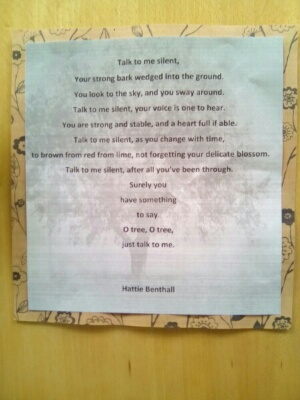 Talk to me silent,
Your strong bark wedged into the ground.
You look to the sky, and you sway around.
Talk to me silent, your voice is one to hear.
You are strong and stable, and a heart full if able.
Talk to me silent, as you change with time,
to brown from red from lime, not forgetting your delicate blossom.
Talk to me silent, after all you've been through.
Surely you
have something
to say
O tree, O tree,
just talk to me.
Hattie Benthall